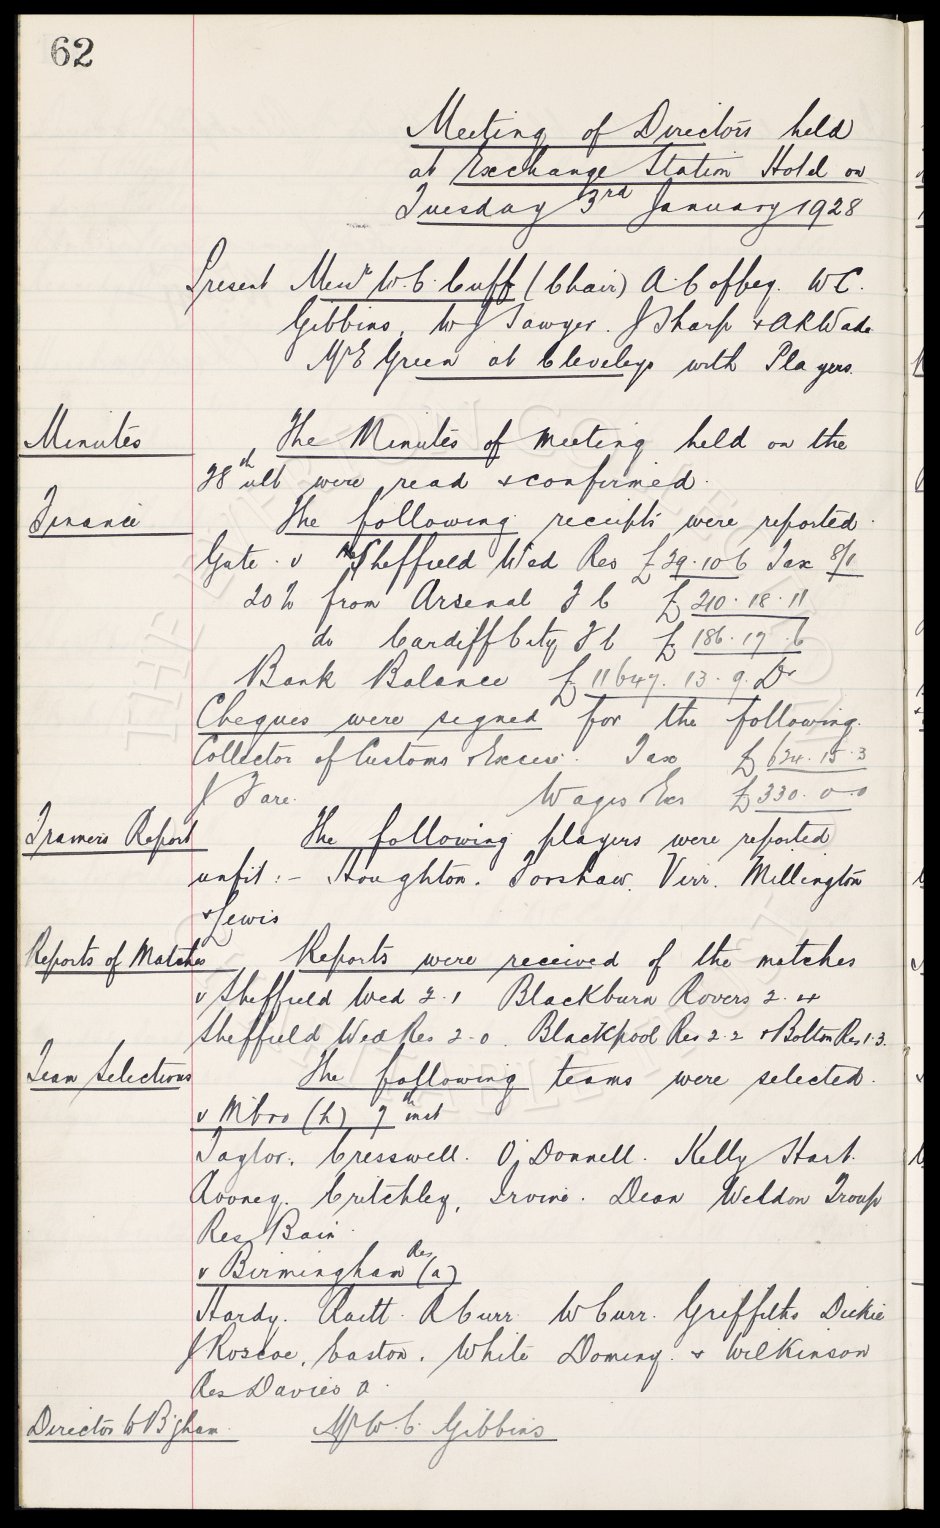 62
Meeting of Directors held
at Exchange Station Hotel on
Tuesday 3rd January 1928
Present Messrs W.C. Cuff (Chair) A. Coffey. WC.
Gibbins, W J Sawyer. J Sharp & A R Wade
Mr E Green at Cleveleys with Players.
Minutes The Minutes of meeting held on the
28th ult were read & confirmed.
Finance The following receipts were reported.
Gate. v Sheffield Wed Res £29.10.6 Tax 8/1
20% from Arsenal F C £210.18.11
do Cardiff City F C £186.17.6
Bank Balance £11647.13.9. Dr
Cheques were signed for the following.
Collector of Customs & Excise. Tax £624.15.3
J Fare. Wages Exs £330.0.0
Trainers Report The following players were reported
unfit:- Houghton. Forshaw. Virr. Millington
& Lewis
Reports of Matches Reports were received of the matches
v Sheffield Wed 2.1 Blackburn Rovers 2.4
Sheffield Wed Res 2-0. Blackpool Res 2-2 & Bolton Res 1-3.
Team Selections The following teams were selected.
v M'bro (h) 7th inst
Taylor. Cresswell. O'Donnell. Kelly Hart.
Rooney. Critchley, Irvine. Dean Weldon Troup
Res Bain
v Birmingham Res (a)
Hardy. Raitt. R Curr W Curr. Griffiths Dickie
J Roscoe, Easton. White Dominy. & Wilkinson
Res Davies A.
Director to B'gham. Mr W.C. Gibbins